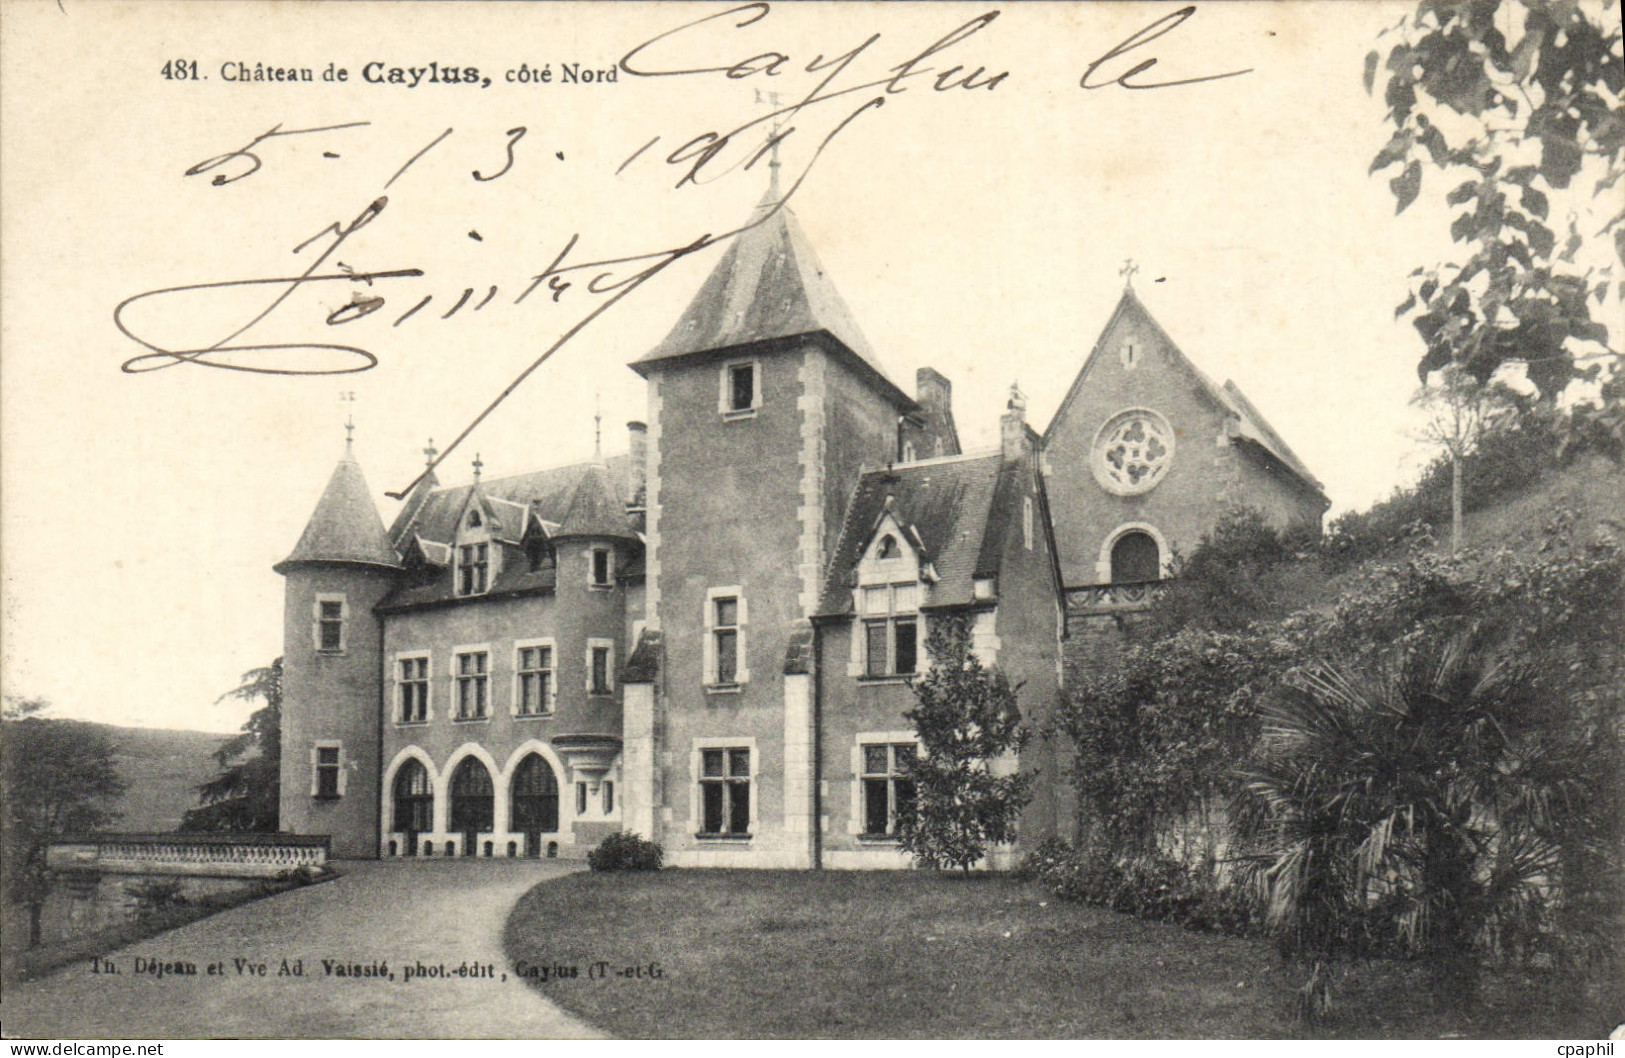 481. Château de Caylus, côté Nord
Caylus le
5-13.191
Th. Déjean et Vve Ad. Vaissié, phot.-édit, Caylus (T-et-G
cpaphil